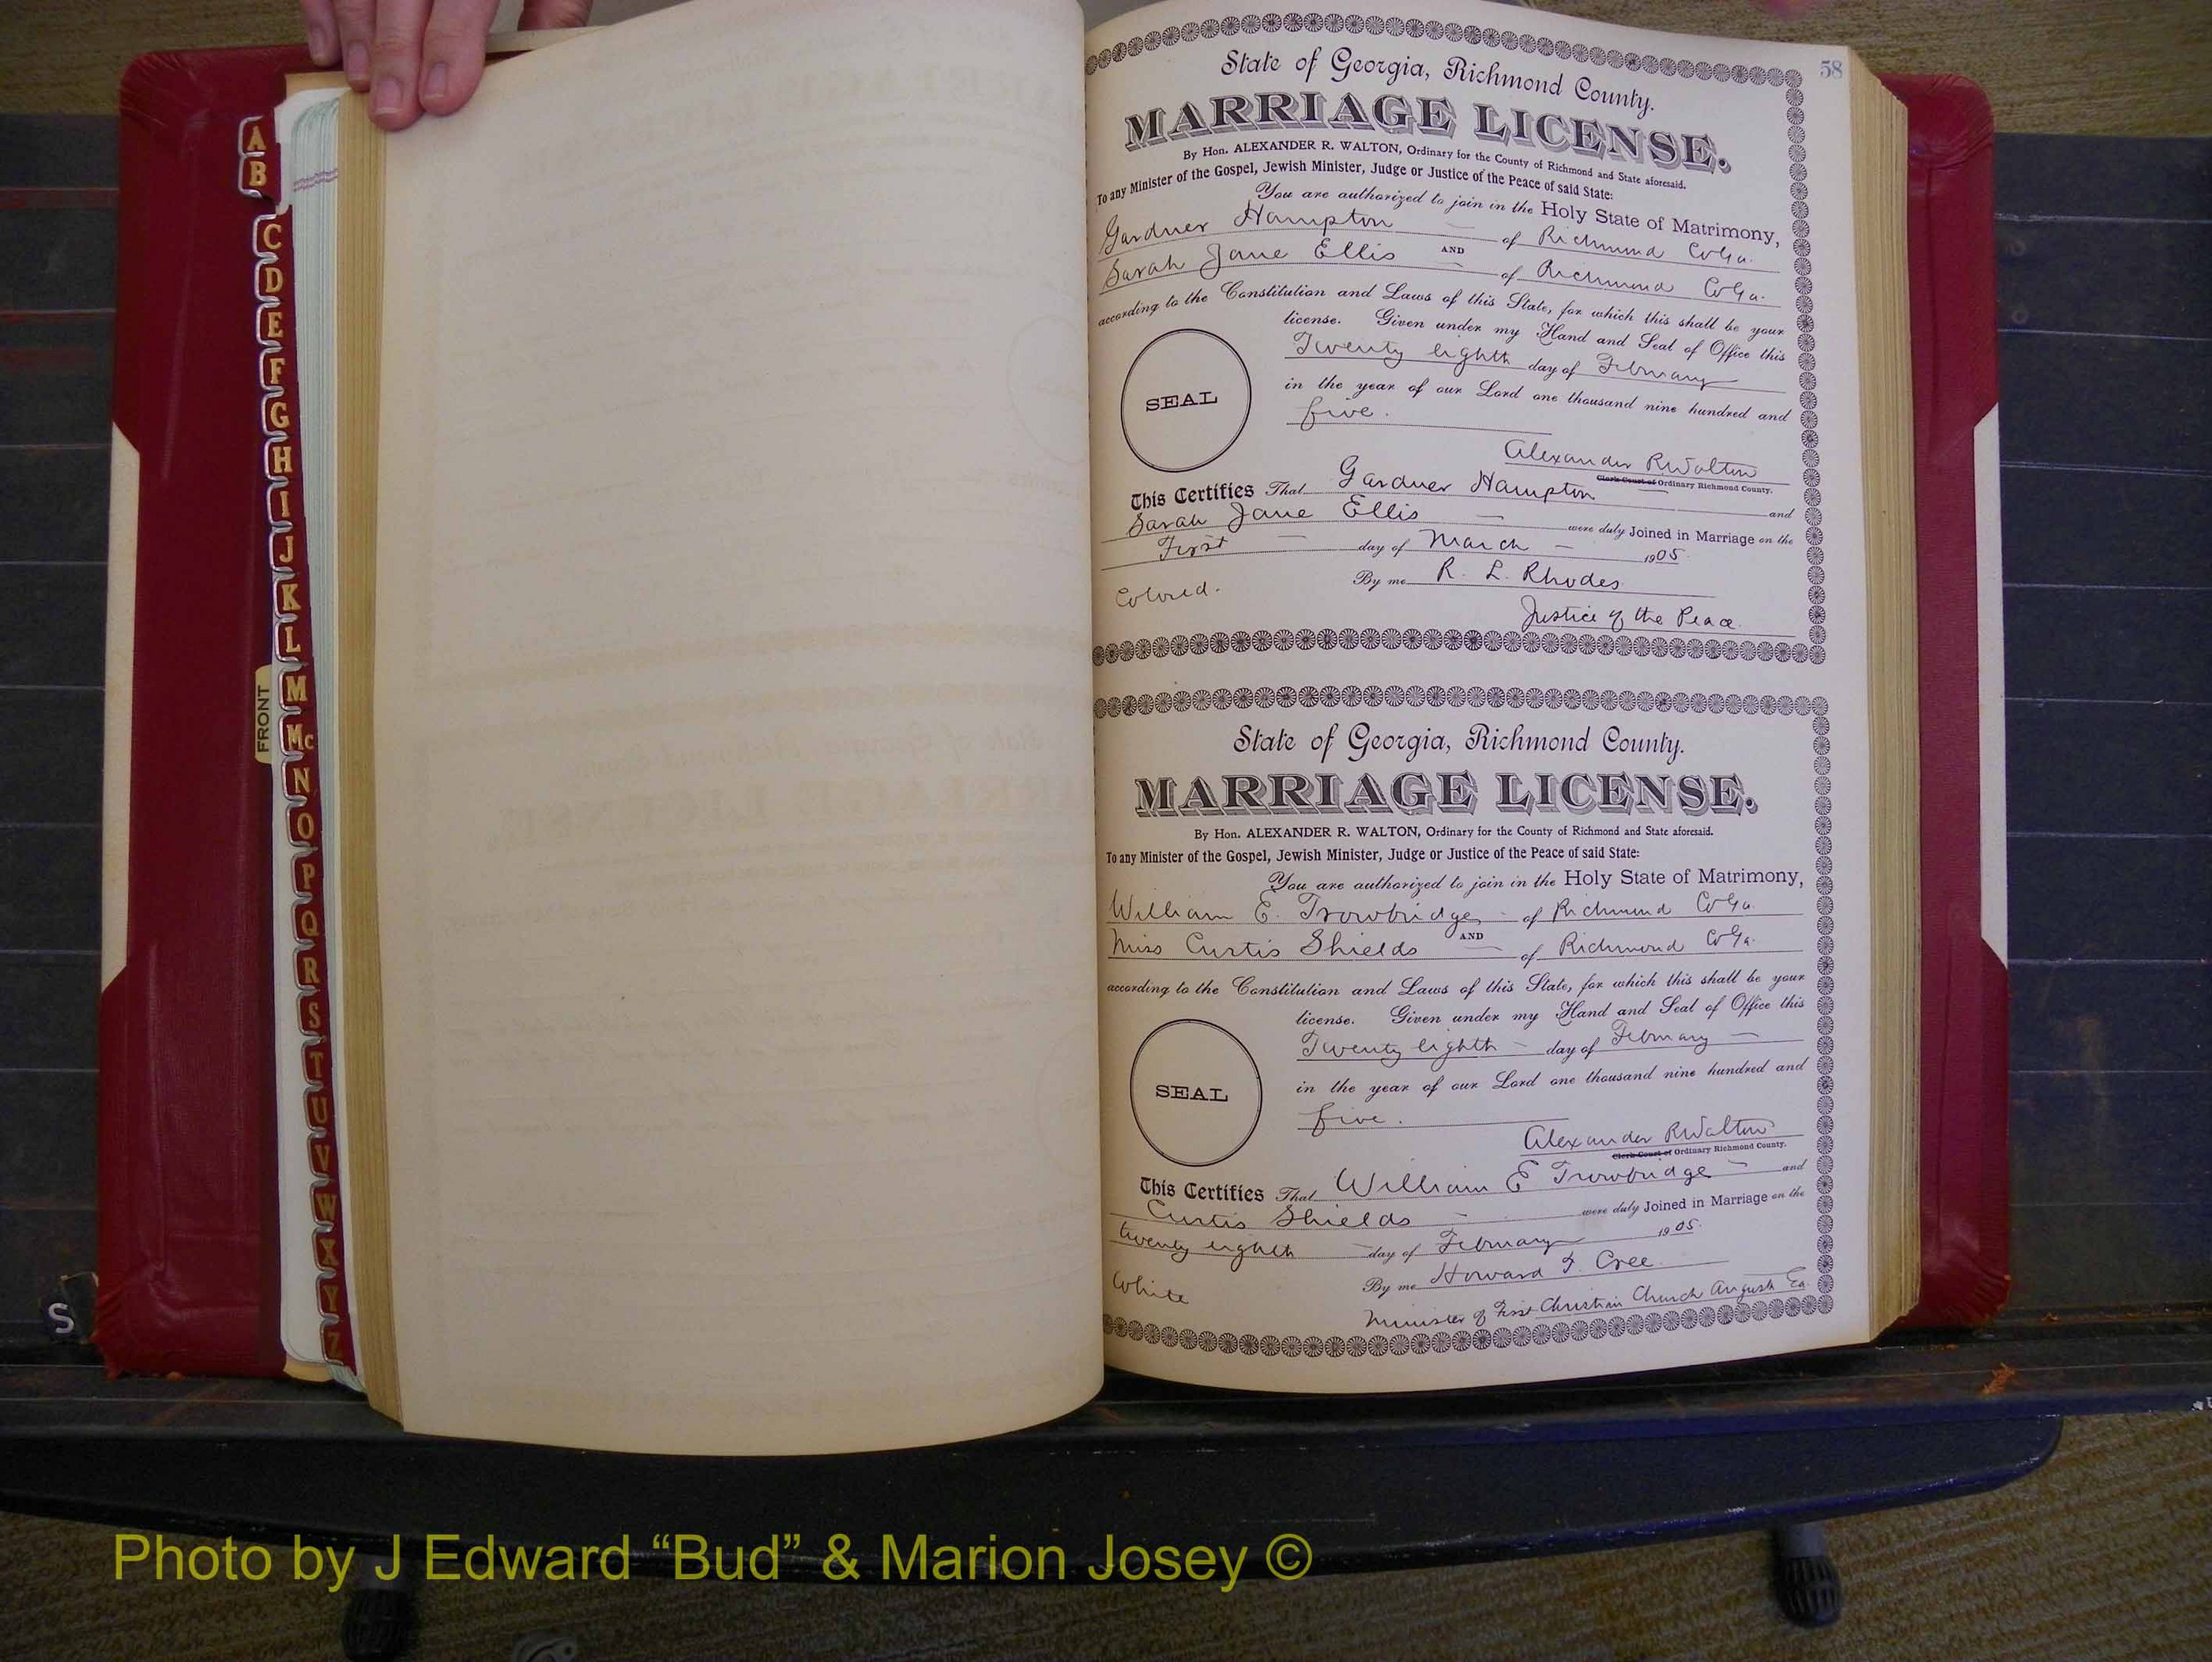 A
B
C
D
E
F
G
H
I
J
K
L
M
Mc
N
O
P
Q
R
S
T
U
V
W
X
Y
Z
FRONT
S
58
State of Georgia, Richmond County.
MARRIAGE LICENSE.
By Hon. ALEXANDER R. WALTON, Ordinary for the County of Richmond and State aforesaid.
To any Minister of the Gospel, Jewish Minister, Judge or Justice of the Peace of said State:
You are authorized to join in the Holy State of Matrimony,
Gardner Hampton of Richmond Co Ga.
AND
Sarah Jane Ellis of Richmond Co Ga.
according to the Constitution and Laws of this State, for which this shall be your
license. Given under my Hand and Seal of Office this
Twenty eighth day of February
in the year of our Lord one thousand nine hundred and
five.
SEAL
Alexander R Walton
Clerk Court of Ordinary Richmond County.
This Certifies That Gardner Hampton and
Sarah Jane Ellis were duly Joined in Marriage on the
First day of March 1905
By me R. L. Rhodes
Colored.
Justice of the Peace.
State of Georgia, Richmond County.
MARRIAGE LICENSE.
By Hon. ALEXANDER R. WALTON, Ordinary for the County of Richmond and State aforesaid.
To any Minister of the Gospel, Jewish Minister, Judge or Justice of the Peace of said State:
You are authorized to join in the Holy State of Matrimony,
William E. Trowbridge of Richmond Co Ga.
AND
Miss Curtis Shields of Richmond Co Ga.
according to the Constitution and Laws of this State, for which this shall be your
license. Given under my Hand and Seal of Office this
Twenty eighth day of February
in the year of our Lord one thousand nine hundred and
five.
SEAL
Alexander R Walton
Clerk Court of Ordinary Richmond County.
This Certifies That William E Trowbridge and
Curtis Shields were duly Joined in Marriage on the
twenty eighth day of February 1905.
By me Howard T. Cree.
White
Minister of First Christian Church Augusta Ga.
Photo by J Edward “Bud” & Marion Josey ©